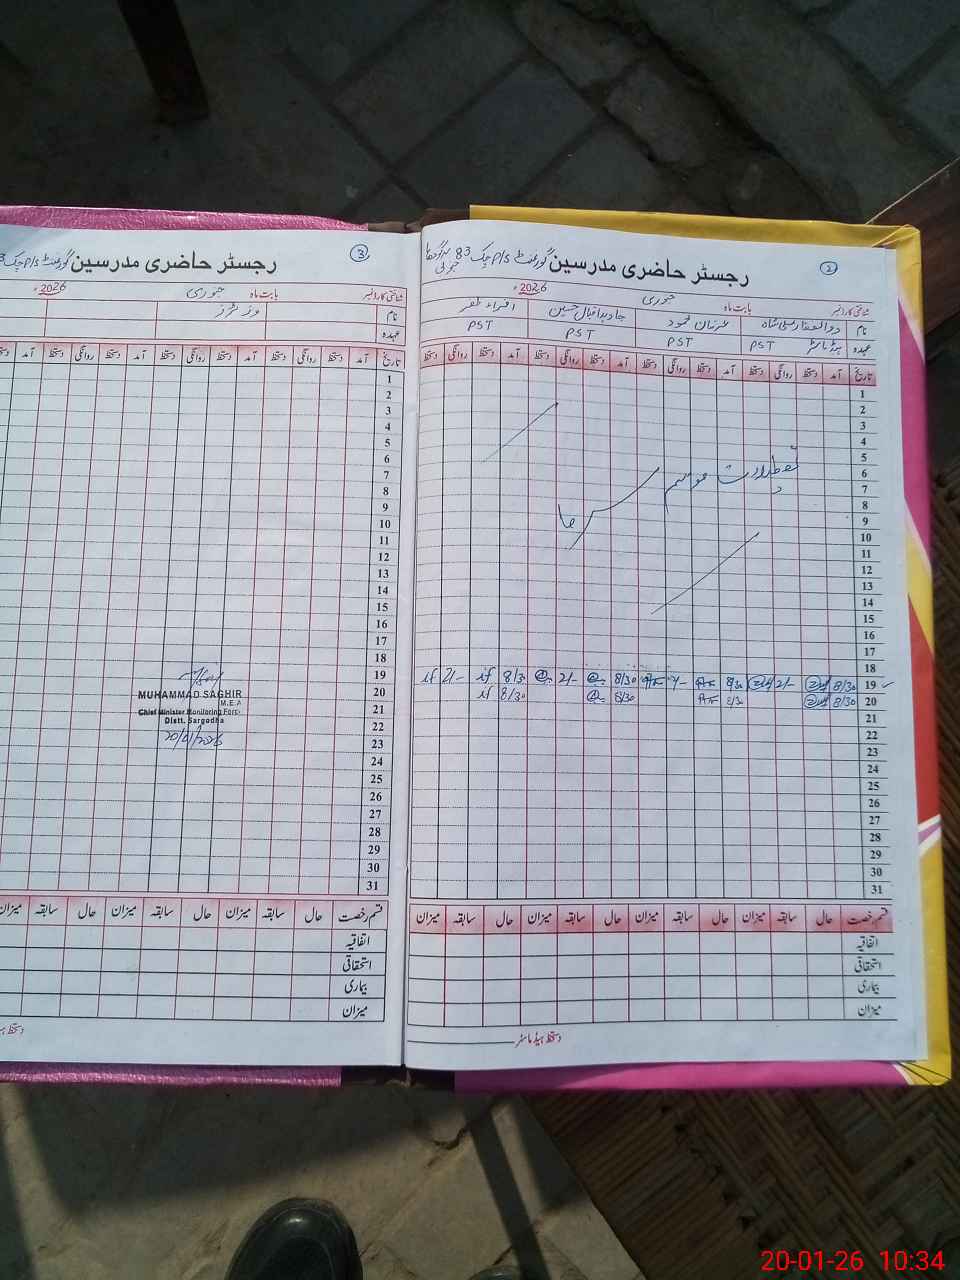 رجسٹر حاضری مدرسین گورنمنٹ P/S چک 83
2
شناختی کارڈ نمبر بابت ماہ جنوری 2026ء
نام ذوالفقار علی شاہ عرفان محمود جاوید اقبال حسین اقراء ظفر
عہدہ ہیڈ ماسٹر PST PST PST PST
تاریخ آمد دستخط روانگی دستخط آمد دستخط روانگی دستخط آمد دستخط روانگی دستخط آمد دستخط روانگی دستخط
1
2
3
4
5
6
7
8
9
10
11
12
13
14
15
16
17
18
19 8/30 2/- 8/30 8/30 2/- 8/30 2/-
20 8/30 8/30 8/30 8/30
21
22
23
24
25
26
27
28
29
30
31
تعطیلات موسم سرما
قسم رخصت حال سابقہ میزان حال سابقہ میزان حال سابقہ میزان حال سابقہ میزان
اتفاقیہ
استحقاقی
بیماری
میزان
دستخط ہیڈ ماسٹر
رجسٹر حاضری مدرسین گورنمنٹ P/S چک
3
شناختی کارڈ نمبر بابت ماہ جنوری 2026ء
نام وزیٹرز
عہدہ
تاریخ آمد دستخط روانگی دستخط آمد دستخط روانگی دستخط آمد دستخط روانگی دستخط
1
2
3
4
5
6
7
8
9
10
11
12
13
14
15
16
17
18
19
20
21
22
23
24
25
26
27
28
29
30
31
MUHAMMAD SAGHIR
M.E.A
Chief Minister Monitoring Force
Distt. Sargodha
20/01/2026
قسم رخصت حال سابقہ میزان حال سابقہ میزان حال سابقہ میزان
اتفاقیہ
استحقاقی
بیماری
میزان
20-01-26 10:34